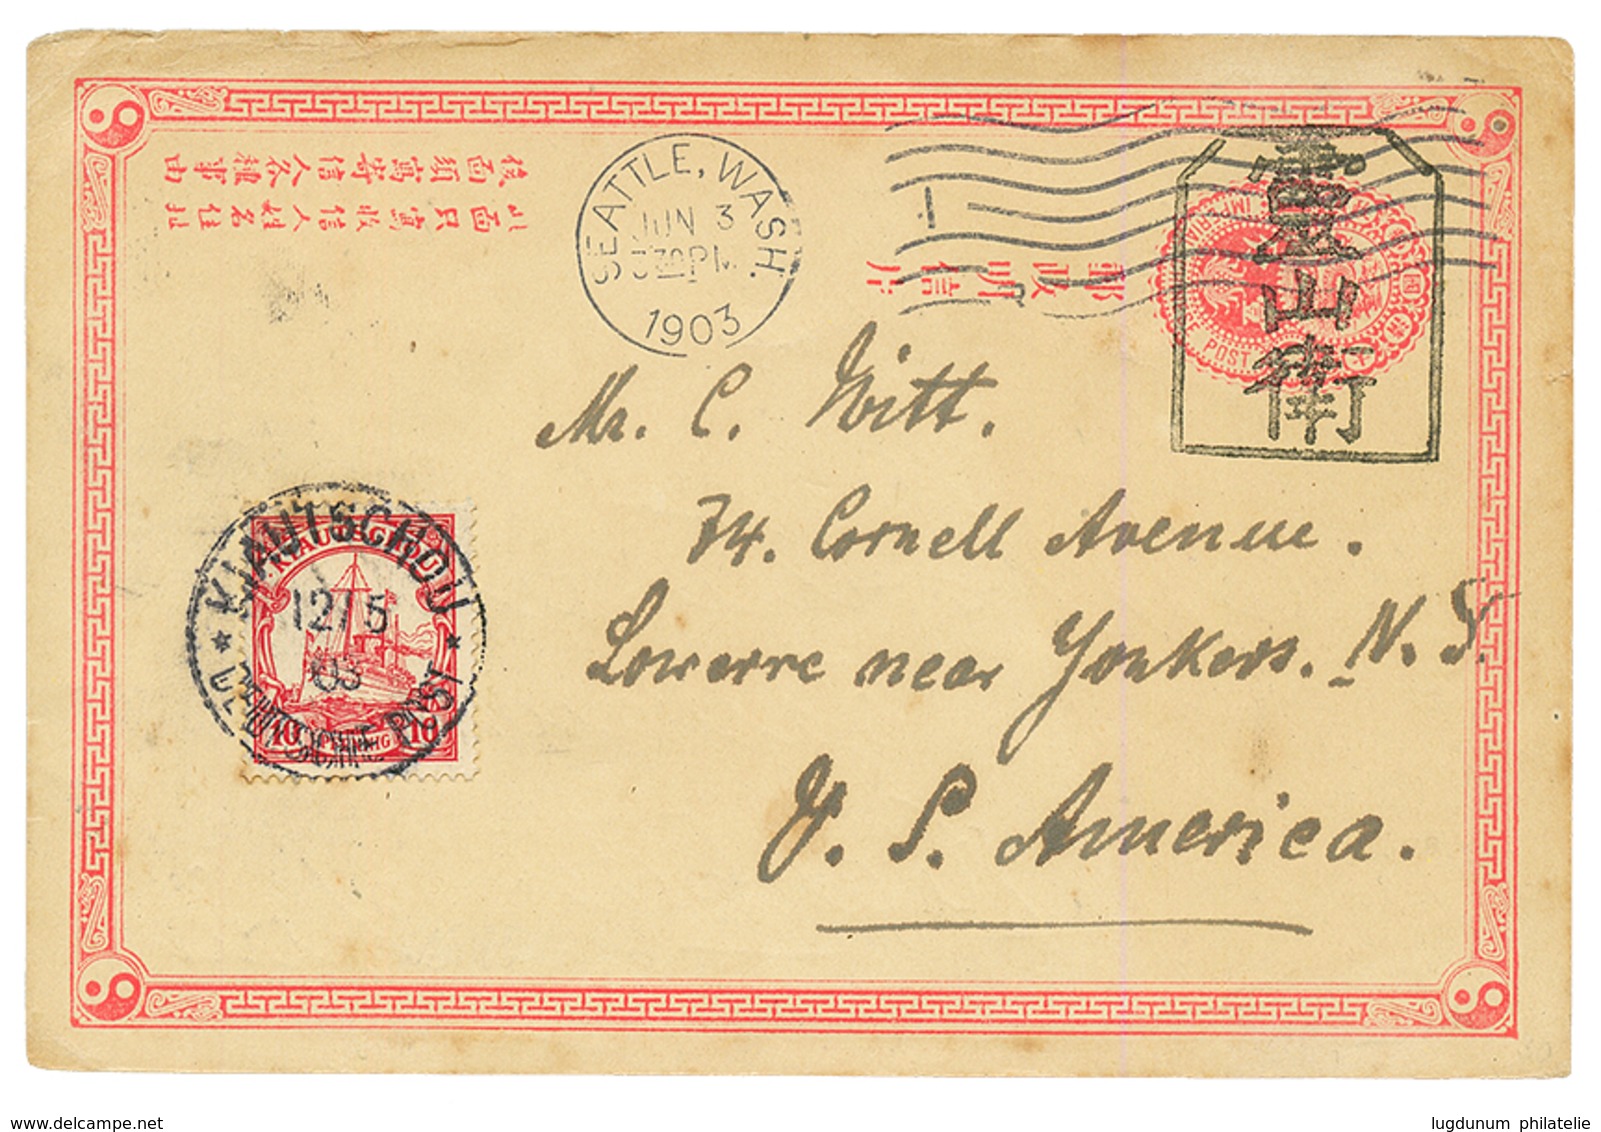 後面須寫寄信人各種事由
此面只寫收信人姓名住址
SEATTLE, WASH.
JUN 3
30 PM
1903
郵政明信片
POST
靈山衛
Mr. C. Witt.
74. Cornell Avenue.
Lowerre near Yonkers. N. Y.
U. S. America.
KIAUTSCHOU
12/5
03
DEUTSCHE POST
KIAUTSCHOU
10 PFENNIG 10
delcampe.net
lugdunum philatelie